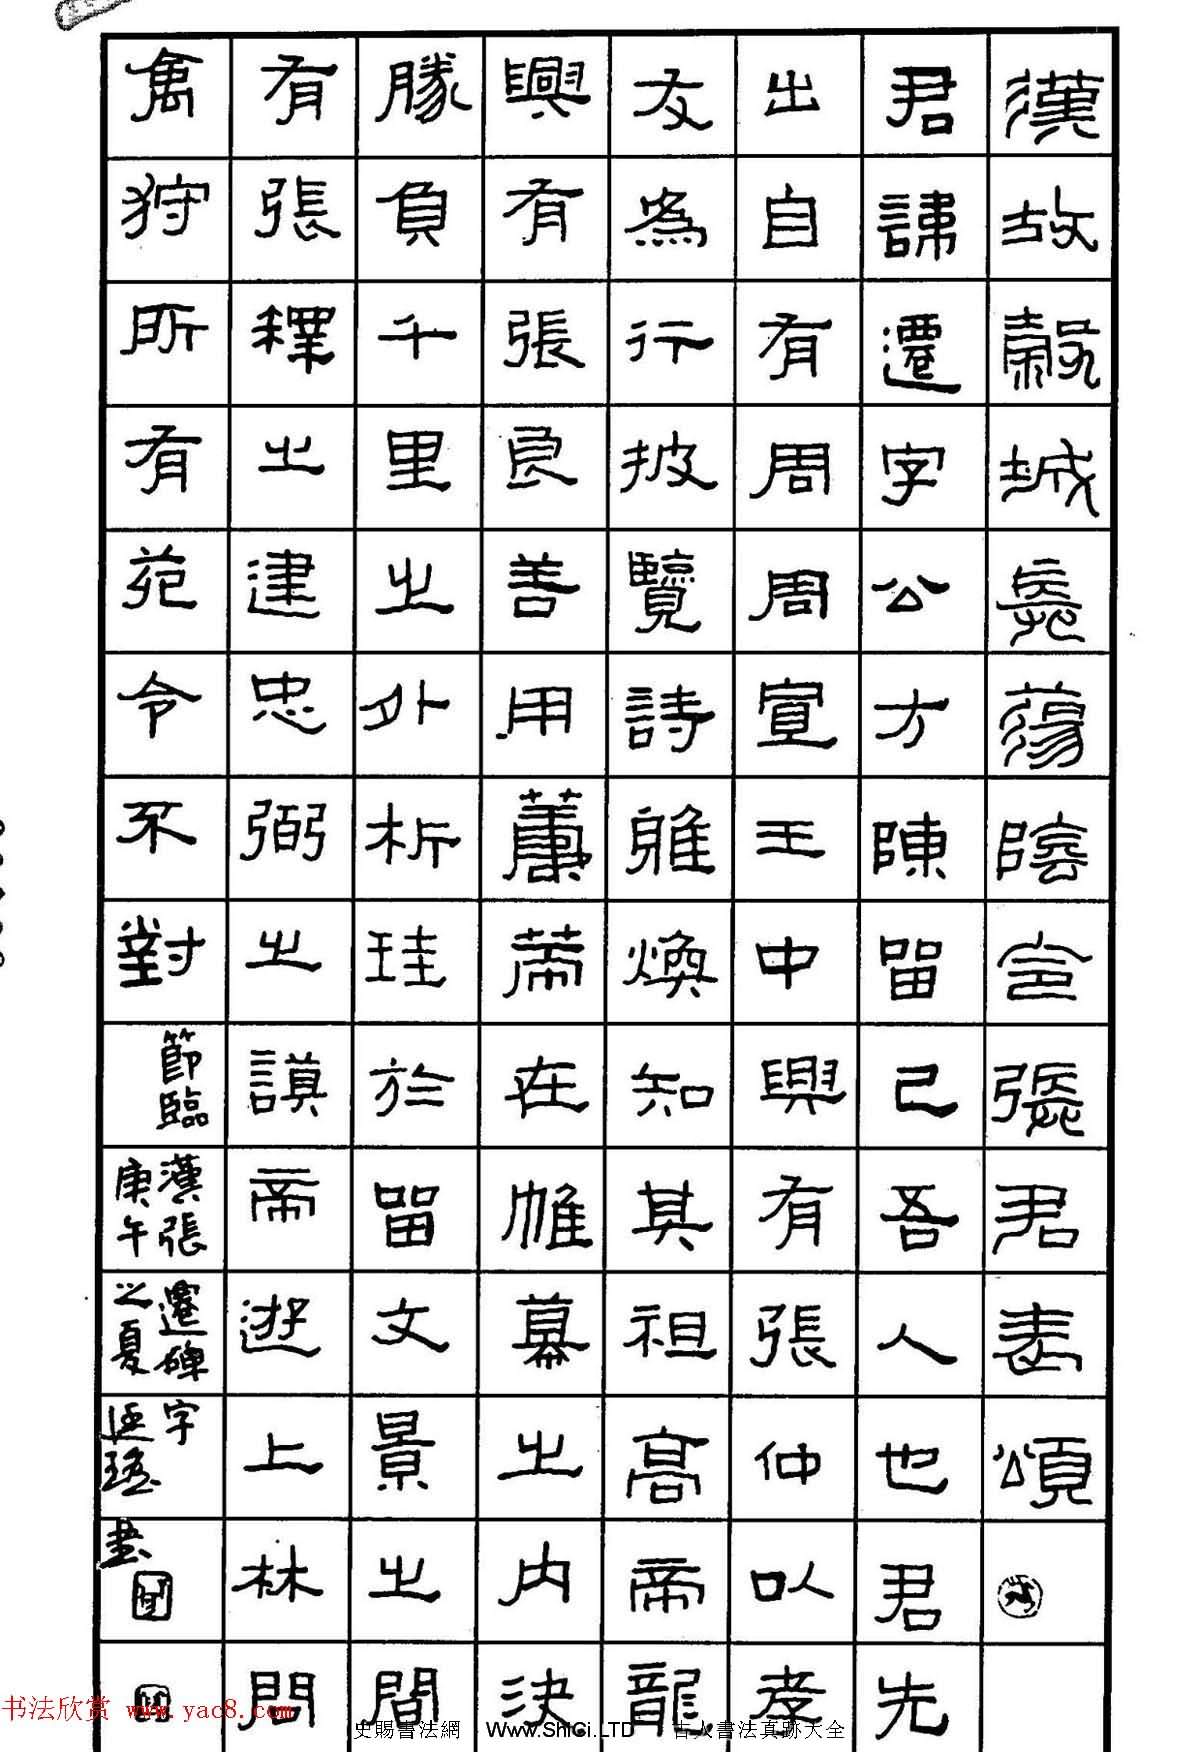 漢故穀城長蕩陰令張君表頌
君諱遷字公方陳留己吾人也君先
出自有周周宣王中興有張仲以孝
友為行披覽詩雅煥知其祖高帝龍
興有張良善用蕭何在帷幕之內決
勝負千里之外析珪於留文景之間
有張釋之建忠弼之謨帝遊上林問
禽狩所有苑令不對
節臨漢張遷碑字
庚午之夏
書
书法欣赏 www.yac8.com
史賜書法網 Www.ShiCi.LTD 古人書法真跡大全